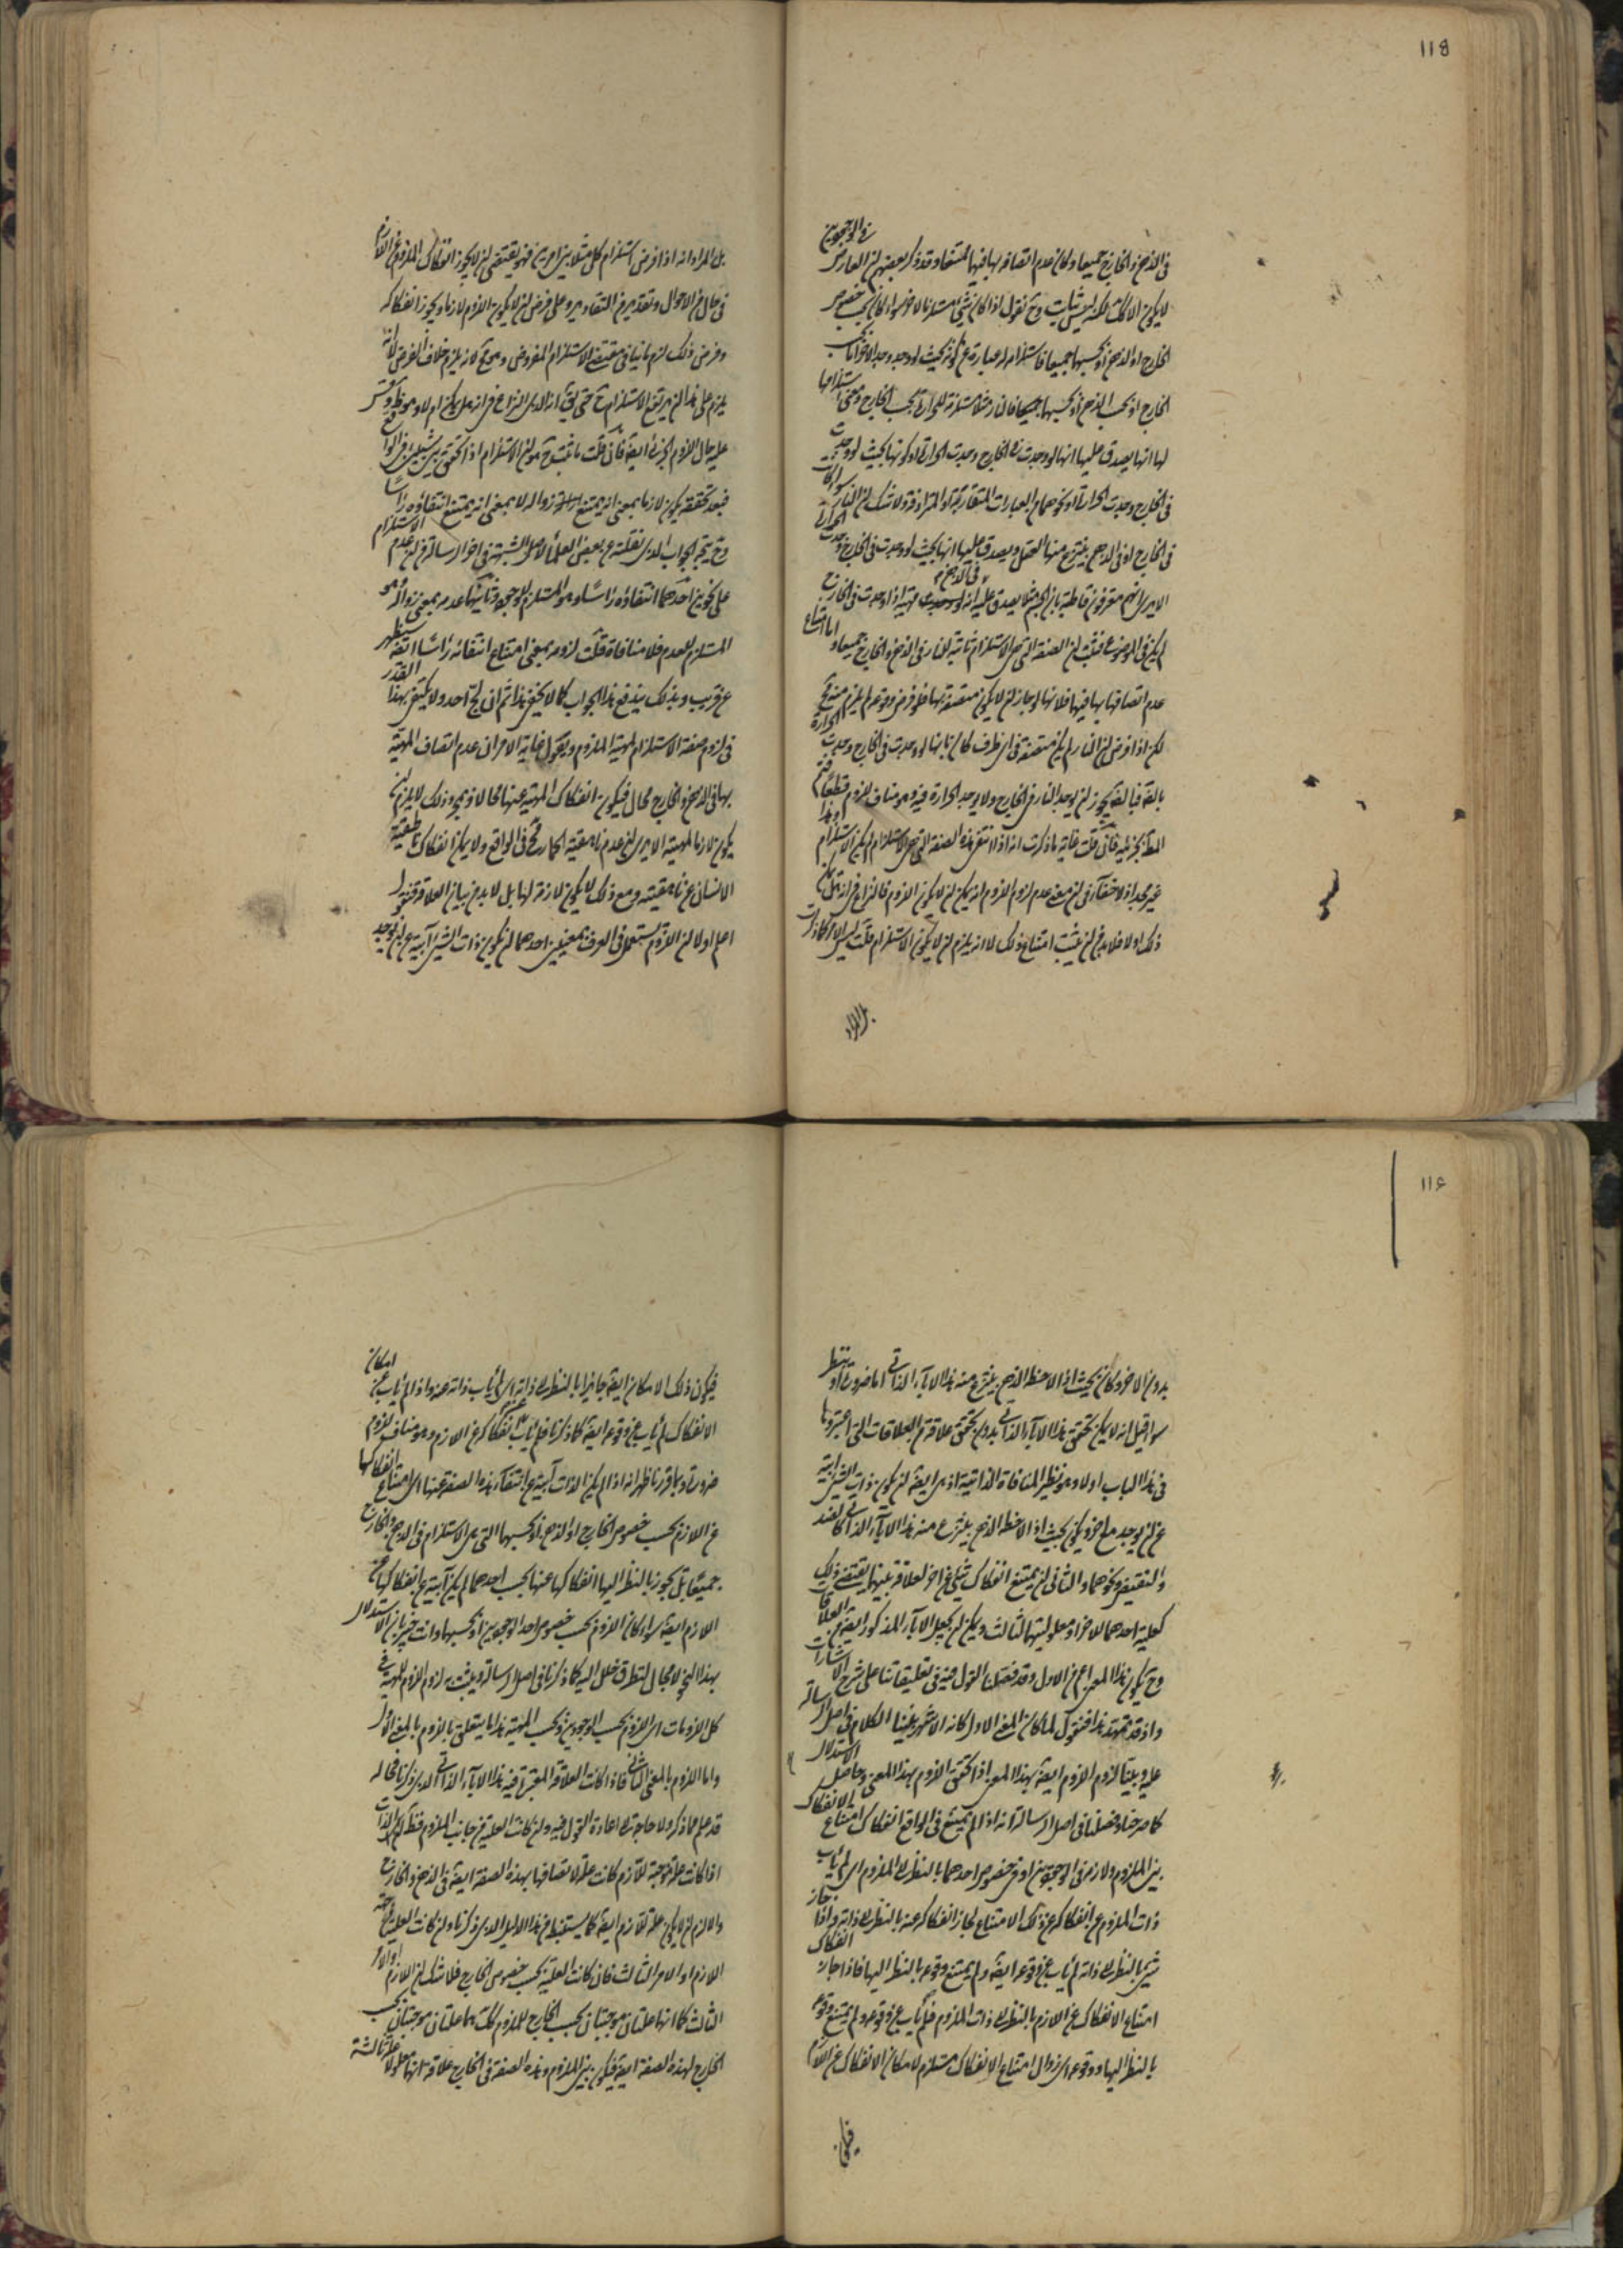 118
في الوجودين
في الذهن والخارج جميعا وكان عدم اتصافه بها فيها ممتنعا وقد ذكر بعضهم ان العارض
لا يكون الا كك لكنه ليس بثابت وح نقول اذا كان شيء مستلزما لاخر سواء كان بحسب خصوص
الخارج او الذهن او بحسبهما جميعا فاستلزامه له عبارة عن كونه بحيث لو وجد وجد الاخر اما بحسب
الخارج او بحسب الذهن او بحسبهما جميعا فان النار مثلا مستلزمة للحرارة بحسب الخارج ومعنى استلزامها
لها انها يصدق عليها انها لو وجدت في الخارج وجدت الحرارة او كونها بحيث لو وجدت
في الخارج وجدت الحرارة او نحوهما من العبارات المتقاربة او المترادفة ولا شك ان النار سواء كانت
في الخارج او في الذهن ينتزع منها العقل ويصدق عليها انها بحيث لو وجدت في الخارج وجدت الحرارة
الا يرى انهم معترفون قاطبة بان الجسم مثلا يصدق عليه انه في الذهن مهية اذا وجدت في الخارج
لم يكن في الموضوع فثبت ان الصفة التي هي الاستلزام ثابتة للنار في الذهن والخارج جميعا واما امتناع
عدم اتصافها بها فيهما فلانها لو جاز ان لا يكون متصفة بها فلو فرض وقوعه لم يلزم منه مح
لكن اذا فرض ان النار لم يكن متصفة في اي ظرف كان بانها لو وجدت في الخارج وجدت الحرارة
بالفعل يجوز ان يوجد النار في الخارج ولا يوجد الحرارة فيه وهو مناف للزوم قطعا فتم
المط بجزئيه فان قلت غاية ما ذكرت انه اذا انتفى هذه الصفة التي هي الاستلزام لم يكن الاستلزام وهذا
غير مجد اذ لا خفاء في ان معنى عدم لزوم اللزوم انه يمكن ان لا يكون اللزوم فالنزاع في انه هل يمكن
ذلك ام لا فلا بد من ان يثبت امتناع ذلك لا انه يلزم ان لا يكون الاستلزام قلت ليس الامر كما ذكرت
بل المراد
بل المراد انه اذا فرض استلزام كل مثلا بين امرين فهو يقتضي ان لا يجوز انفكاك الملزوم عن اللازم
في حال من الاحوال وتقدير من التقادير وعلى فرض ان لا يكون اللزوم لازما ويجوز انفكاكه
وفرض ذلك لزم ما ينافي مقتضى الاستلزام المفروض وهو مح لانه يلزم خلاف الفرض لانه
يلزم على هذا ان يرتفع الاستلزام ح حتى يق انه الذي النزاع في انه هل يمكن ام لا وهو ظ وقس
عليه حال اللزوم الجزئي ايضا فان قلت ما ثبت ح هو ان الاستلزام اذا تحقق بين شيئين في الواقع
فبعد تحققه يكون لازما بمعنى انه يمتنع زواله لا بمعنى انه يمتنع انتفاؤه راسا
وح يتجه الجواب الذي نقلته عن بعض العلماء لاصل الشبهة في اخر الرسالة من ان عدم الاستلزام
على نحوين احدهما انتفاؤه راسا وهو المستلزم للوجود وثانيهما عدمه بمعنى زواله وهو
المستلزم للعدم فلا منافاة قلت لزومه بمعنى امتناع انتفائه راسا ايضا سيظهر
عن قريب وبذلك يندفع هذا الجواب كما لا يخفى هذا ثم ان لج احد ولا يكتفي بهذا القدر
في لزوم صفة الاستلزام لمهية الملزوم ويقول غاية الامر ان عدم اتصاف المهية
بها في الذهن والخارج محال فيكون انفكاك المهية عنها محالا ومجرد ذلك لا يلزم ان
يكون لازما لمهية الا يرى ان عدم ناهقية الحمار مح في الواقع ولا يمكن انفكاك ناطقية
الانسان عن ناهقيته ومع ذلك لا يكون لازمة لها بل لا بد من بيان العلاقة فنقول
اعلم اولا ان اللزوم يستعمل في العرف بمعنيين احدهما ان يكون ذات الشيء آبية عن ان يوجد
116
بدون الاخر وكان بحيث اذا لاحظ الذهن ينتزع منه هذا الاباء الذاتي اما ضرورة او بنظر
سواء قيل انه لا يمكن تحقق هذا الاباء الذاتي بدون تحقق علاقة من العلاقات التي اعتبروها
في هذا الباب او لا وهو نظير المنافاة الذاتية اذ هي ايضا ان يكون ذات الشيء آبية
عن ان يوجد مع اخر ويكون بحيث اذا لاحظ الذهن ينتزع منه هذا الاباء الذاتي كالضد
والنقيض ونحوهما والثاني ان يمتنع انفكاك شيء عن اخر لعلاقة بينهما يقتضي ذلك
كعلية احدهما للاخر او معلوليتهما لثالث ويمكن ان يجعل الاباء المذكور ايضا من العلاقات
وح يكون هذا المعنى اعم من الاول وقد فصلنا القول فيه في تعليقاتنا على شرح الاشارات
واذ قد تمهد هذا فنقول لما كان المعنى الاول كانه الاشهر بنينا الكلام في اصل الرسالة
عليه وبينا لزوم اللزوم ايضا بهذا المعنى اذا تحقق اللزوم بهذا المعنى وحاصل الاستدلال
كما صرحنا وفصلنا في اصل الرسالة انه اذا لم يمتنع في الواقع انفكاك امتناع الانفكاك
بين الملزوم ولازمه في الوجودين او في خصوص احدهما بالنظر الى الملزوم اي لم ياب
ذات الملزوم عن انفكاكه عن ذلك الامتناع لجاز انفكاكه عنه بالنظر الى ذاته واذا جاز
شيء بالنظر الى ذاته لم ياب عن وقوعه ايضا ولم يمتنع وقوعه بالنظر اليها فاذا جاز انفكاك
امتناع الانفكاك عن اللازم بالنظر الى ذات الملزوم فلم ياب عن وقوعه ولم يمتنع وقوعه
بالنظر اليها ووقوعه اي زوال امتناع الانفكاك مستلزم لامكان الانفكاك عن اللازم
فيكون
فيكون ذلك الامكان ايضا جايزا بالنظر الى ذاته اي لم ياب ذاته عنه واذا لم ياب عن امكان
الانفكاك لم ياب عن وقوعه ايضا كما ذكرنا فلم ياب عن انفكاكه عن اللازم وهو مناف للزوم
ضرورة وبما قررنا ظهر انه اذا لم يكن الذات آبية عن انتفاء هذه الصفة عنها اي امتناع انفكاكها
عن اللازم بحسب خصوص الخارج او الذهن او بحسبهما التي هي الاستلزام في الذهن والخارج
جميعا بل يجوز بالنظر اليها انفكاكها عنها بحسب احدهما لم يكن آبية عن انفكاكها عن
اللازم ايضا سواء كان اللزوم بحسب خصوص احد الوجودين او بحسبهما وانت خبير بان الاستدلال
بهذا النحو لا مجال لتطرق خلل اليه كما ذكرنا في اصل الرسالة ويثبت به لزوم اللزوم للمهية في
كل اللزومات اي اللزوم بحسب الوجودين وبحسب المهية هذا ما يتعلق باللزوم بالمعنى الاول
واما اللزوم بالمعنى الثاني فاذا كانت العلاقة المعتبرة فيه هذا الاباء الذاتي الذي ذكرنا فحاله
قد علم مما ذكر ولا حاجة الى اعادة القول فيه وان كانت العلية من جانب الملزوم فنقول ان الذات
اذا كانت علة موجبة للازم كانت علة لاتصافها بهذه الصفة ايضا في الذهن والخارج
والا لزم ان لا يكون علة للازم ايضا كما يستنبط من هذا الدليل الذي ذكرنا وان كانت العلية من جهة
اللازم او الامر الثالث فان كانت العلية بحسب خصوص الخارج فلا شك ان اللازم او الامر
الثالث كما انهما علتان موجبتان بحسب الخارج للملزوم كك هما علتان موجبتان بحسب
الخارج لهذه الصفة ايضا فيكون بين الملزوم وهذه الصفة في الخارج علاقة انهما معلولا علة ثالثة